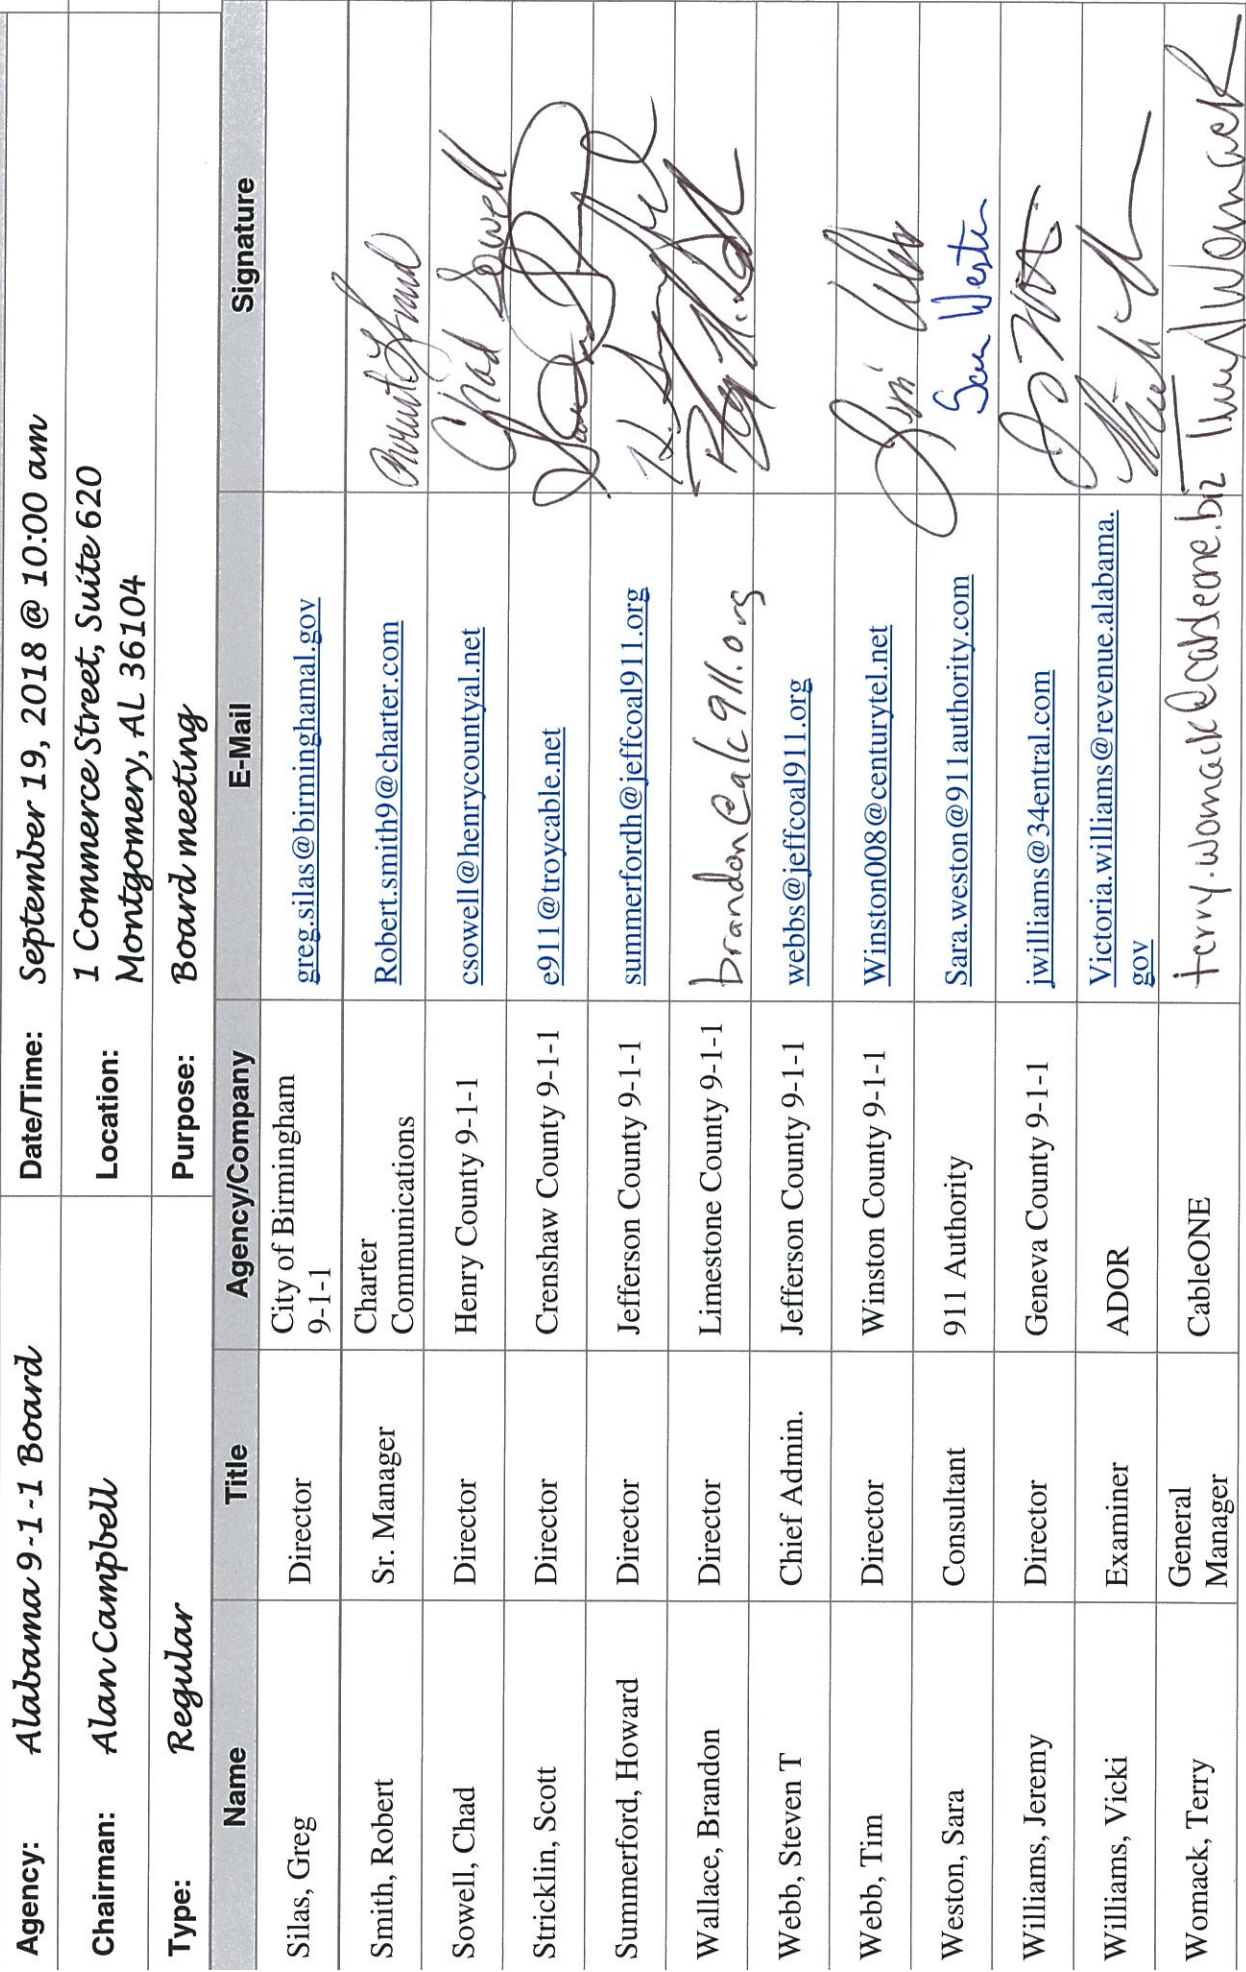 Agency: Alabama 9-1-1 Board Date/Time: September 19, 2018 @ 10:00 am
Chairman: Alan Campbell Location: 1 Commerce Street, Suite 620
Montgomery, AL 36104
Type: Regular Purpose: Board meeting
Name Title Agency/Company E-Mail Signature
Silas, Greg Director City of Birmingham greg.silas@birminghamal.gov
9-1-1
Smith, Robert Sr. Manager Charter Robert.smith9@charter.com
Communications
Sowell, Chad Director Henry County 9-1-1 csowell@henrycountyal.net Chad Sowell
Stricklin, Scott Director Crenshaw County 9-1-1 e911@troycable.net
Summerford, Howard Director Jefferson County 9-1-1 summerfordh@jeffcoal911.org
Wallace, Brandon Director Limestone County 9-1-1 brandon@alc911.org
Webb, Steven T Chief Admin. Jefferson County 9-1-1 webbs@jeffcoal911.org
Webb, Tim Director Winston County 9-1-1 Winston008@centurytel.net
Weston, Sara Consultant 911 Authority Sara.weston@911authority.com Sara Weston
Williams, Jeremy Director Geneva County 9-1-1 jwilliams@34entral.com
Williams, Vicki Examiner ADOR Victoria.williams@revenue.alabama.
gov
Womack, Terry General CableONE terry.womack@cableone.biz Terry Womack
Manager